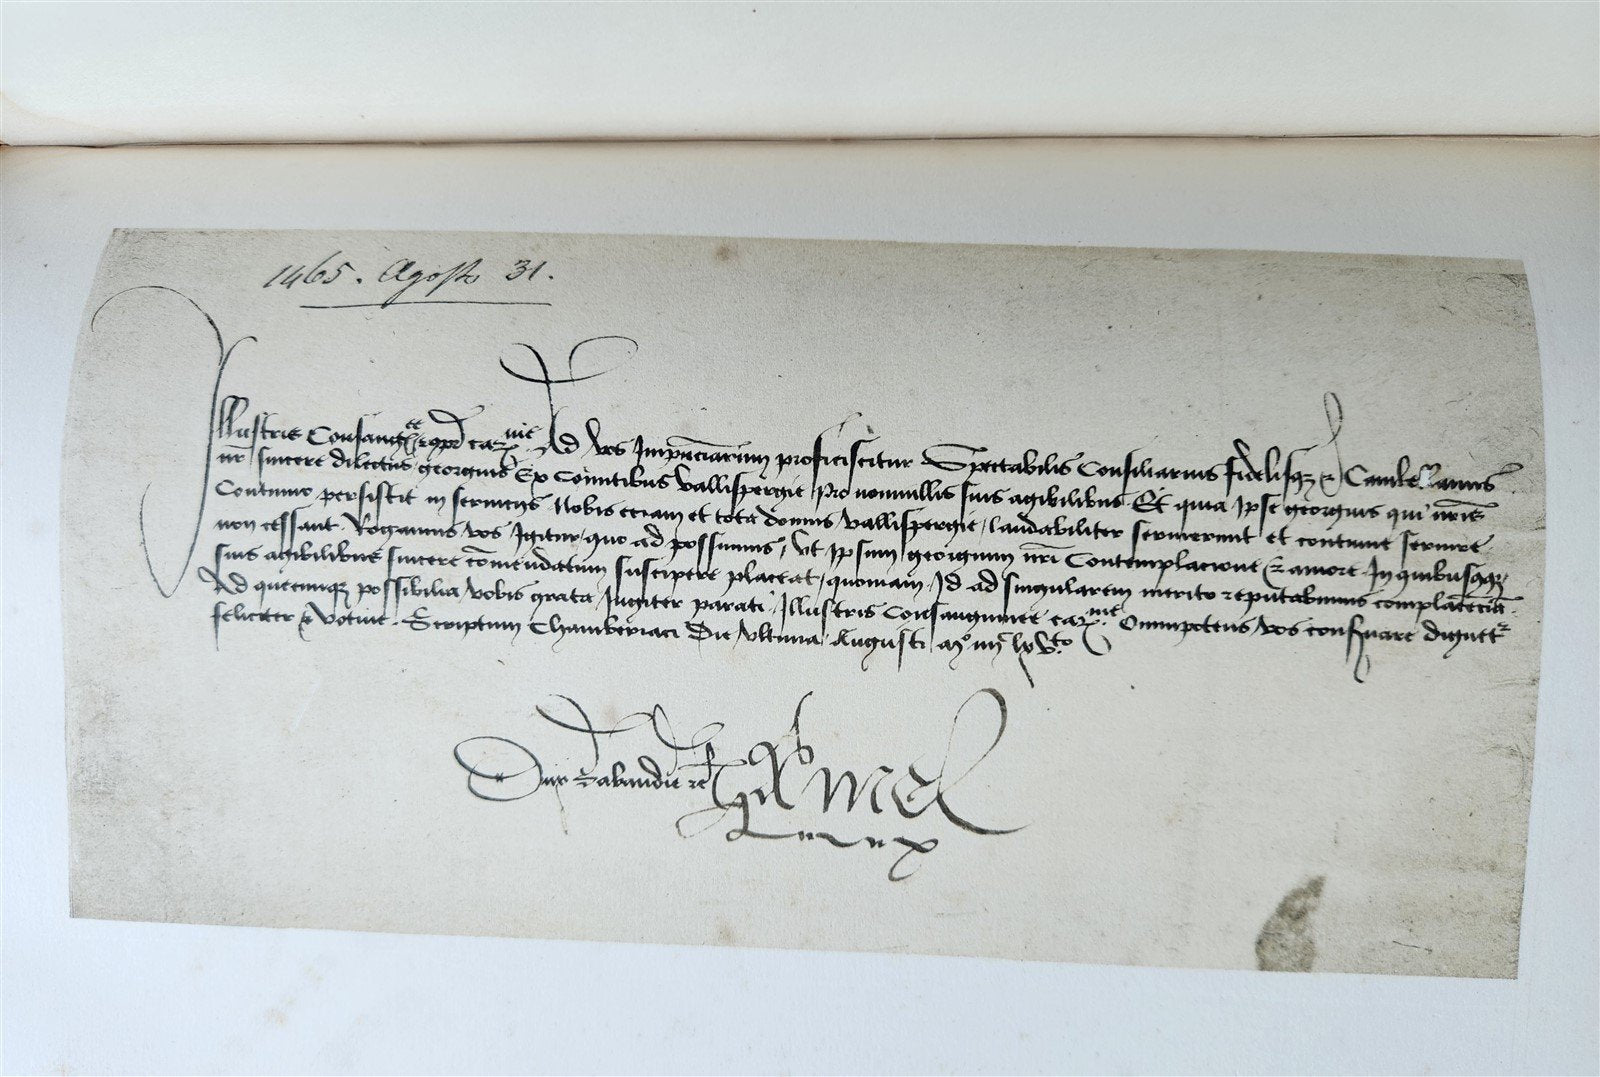 1465. Agosto 31.
Illustris Consang ee et car me Ad vos Impnciarum proficiscitur Spectabilis Consiliarius fidelisqz et Cambellanus
nr sincere dilectus georgius Ex Comitibus Vallispergie pro nonnullis suis agibilibus Et quia Ipse georgius qui nris
Continuo persistit in serviciis Nobis etiam et tota domus Vallispergie laudabiliter servierunt et continue servire
non cessant Rogamus vos Igitur quo ad possumus Ut Ipsum georgium nri Contemplacione et amore In quibusqz
suis agibilibus sincere comendatum suscipere placeat quoniam Id ad singularem merito reputabimus complacecia
Ad quecumqz possibilia vobis grata Iugiter parati Illustris Consanguinee car me Omnipotens vos confvare dignet
feliciter et votive Scriptum Chamberiaci Die Ultima Augusti mº iiij lxvto
Dux Sabaudie etc